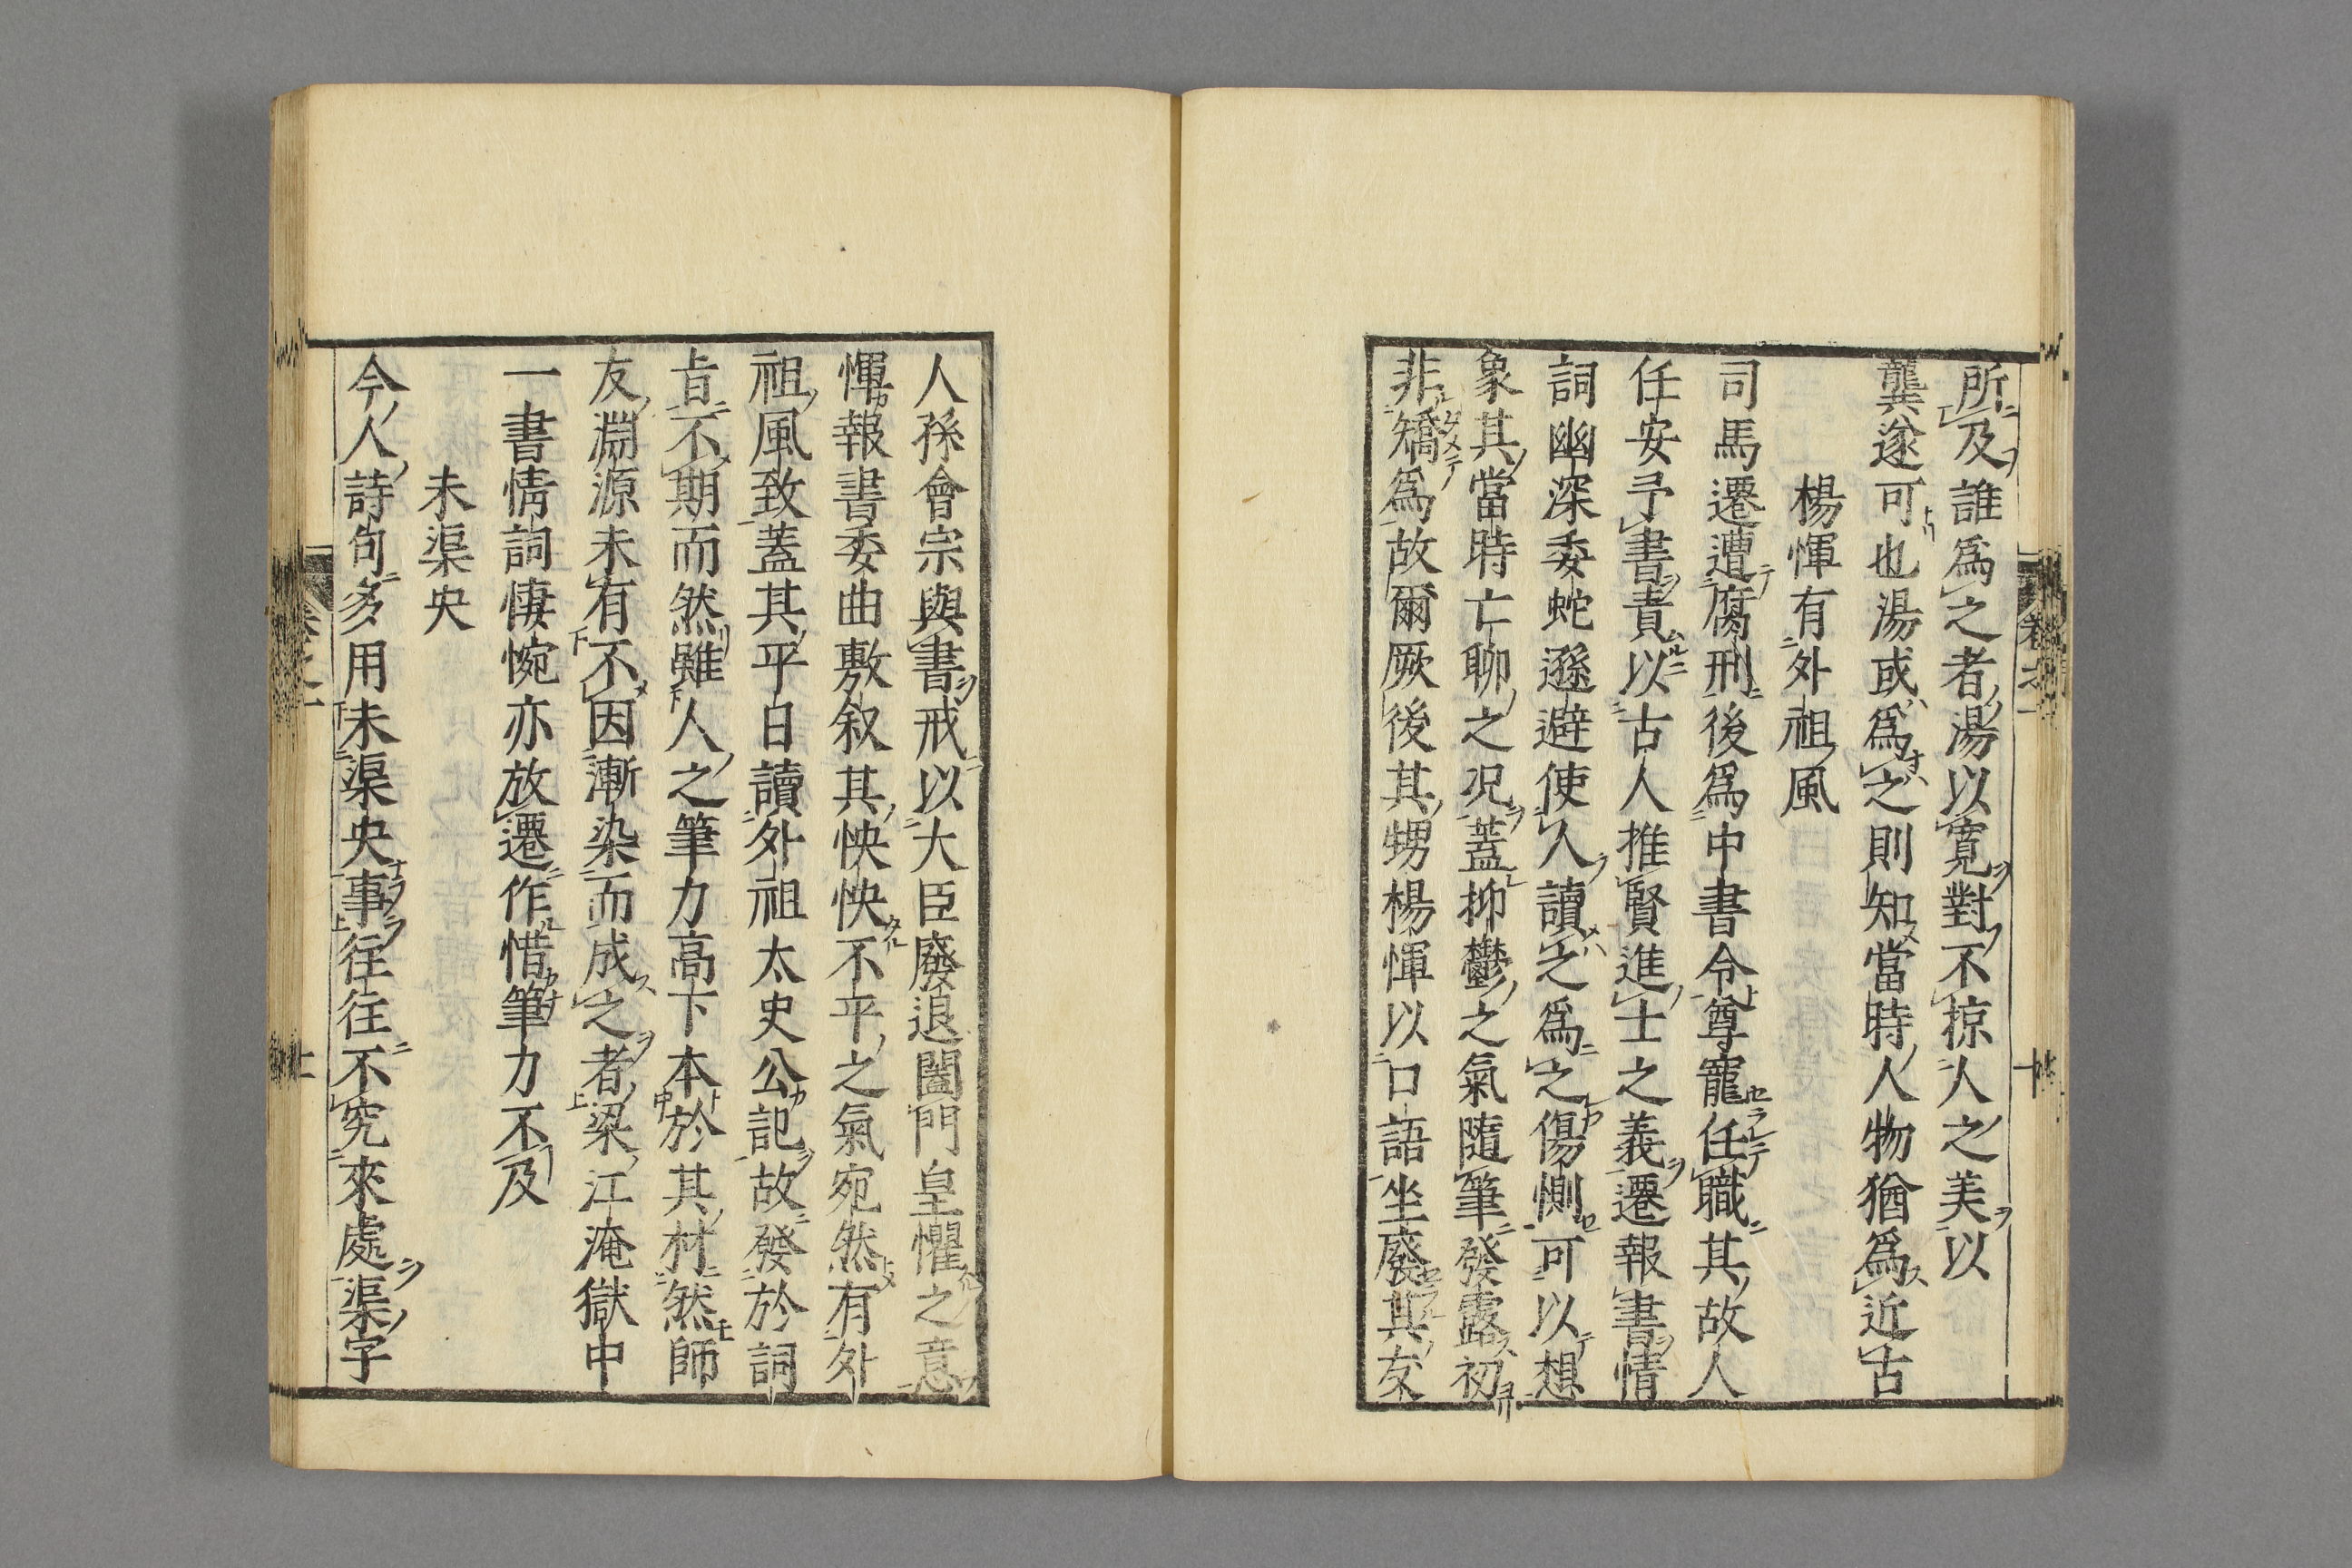 所及誰爲之者湯以寬對不掠人之美以
龔遂可也湯或爲之則知當時人物猶爲近古
楊惲有外祖風
司馬遷遭腐刑後爲中書令尊寵任職其故人
任安予書責以古人推賢進士之義遷報書情
詞幽深委蛇遜避使人讀之爲之傷惻可以想
象其當時亡聊之况蓋抑鬱之氣隨筆發露初
非矯爲故爾厥後其甥楊惲以口語坐廢其友
人孫會宗與書戒以大臣廢退闔門皇懼之意
惲報書委曲敷叙其怏怏不平之氣宛然有外
祖風致蓋其平日讀外祖太史公記故發於詞
㫖不期而然雖人之筆力高下本於其材然師
友淵源未有不因漸染而成之者梁江淹獄中
一書情詞悽惋亦放遷作惜筆力不及
未渠央
今人詩句多用未渠央事往往不究來處渠字